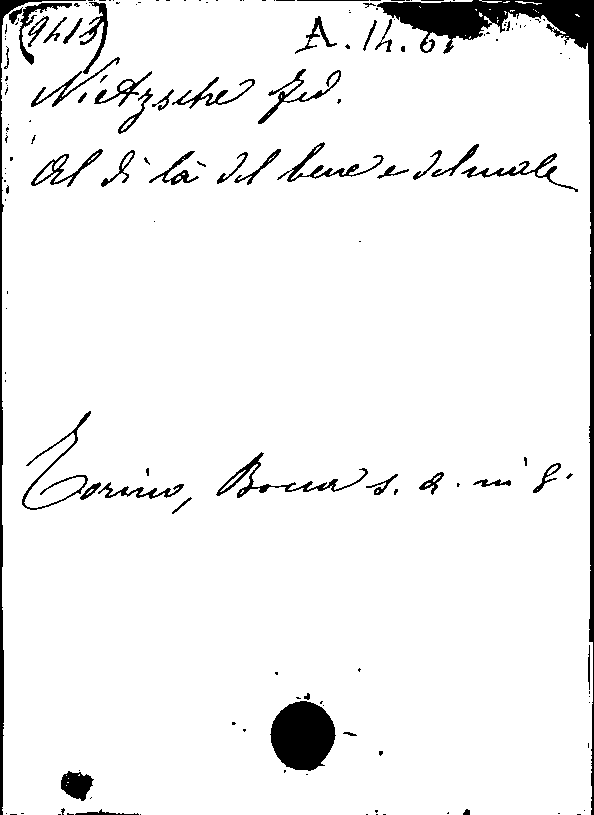 (9413)
A. 14. 6
Nietzsche Fed.
Al di là del bene e del male
Torino, Bocca s. a. in 8.